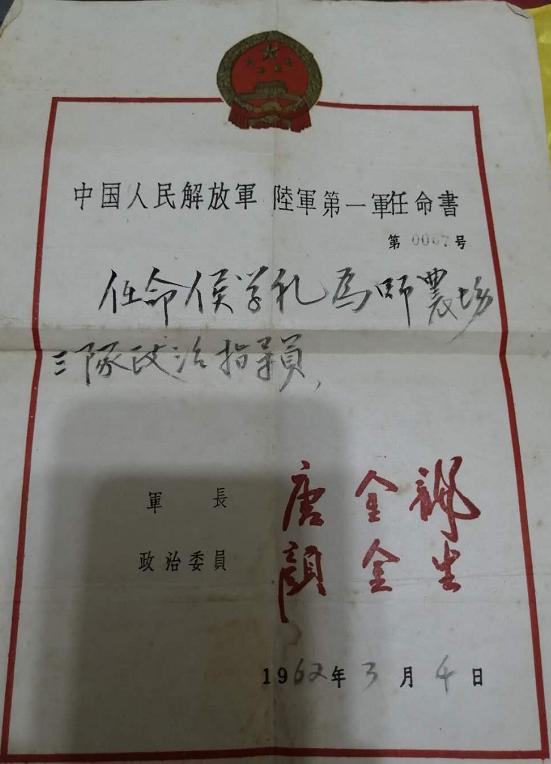 中国人民解放軍 陸軍第一軍任命書
第 0067 号
任命侯学礼為師農場
三隊政治指导員,
軍 長 唐金龍
政治委員 顔金生
1962年3月4日